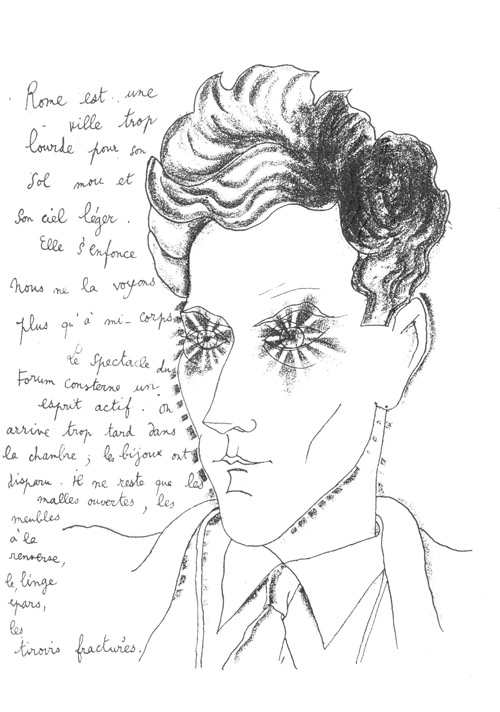 Rome est une
ville trop
lourde pour son
sol mou et
son ciel léger.
Elle s'enfonce
Nous ne la voyons
plus qu'à mi-corps
Le spectacle du
Forum consterne un
esprit actif. On
arrive trop tard dans
la chambre ; les bijoux ont
disparu. Il ne reste que les
malles ouvertes, les
meubles
à la
renverse,
le linge
épars,
les
tiroirs fracturés.